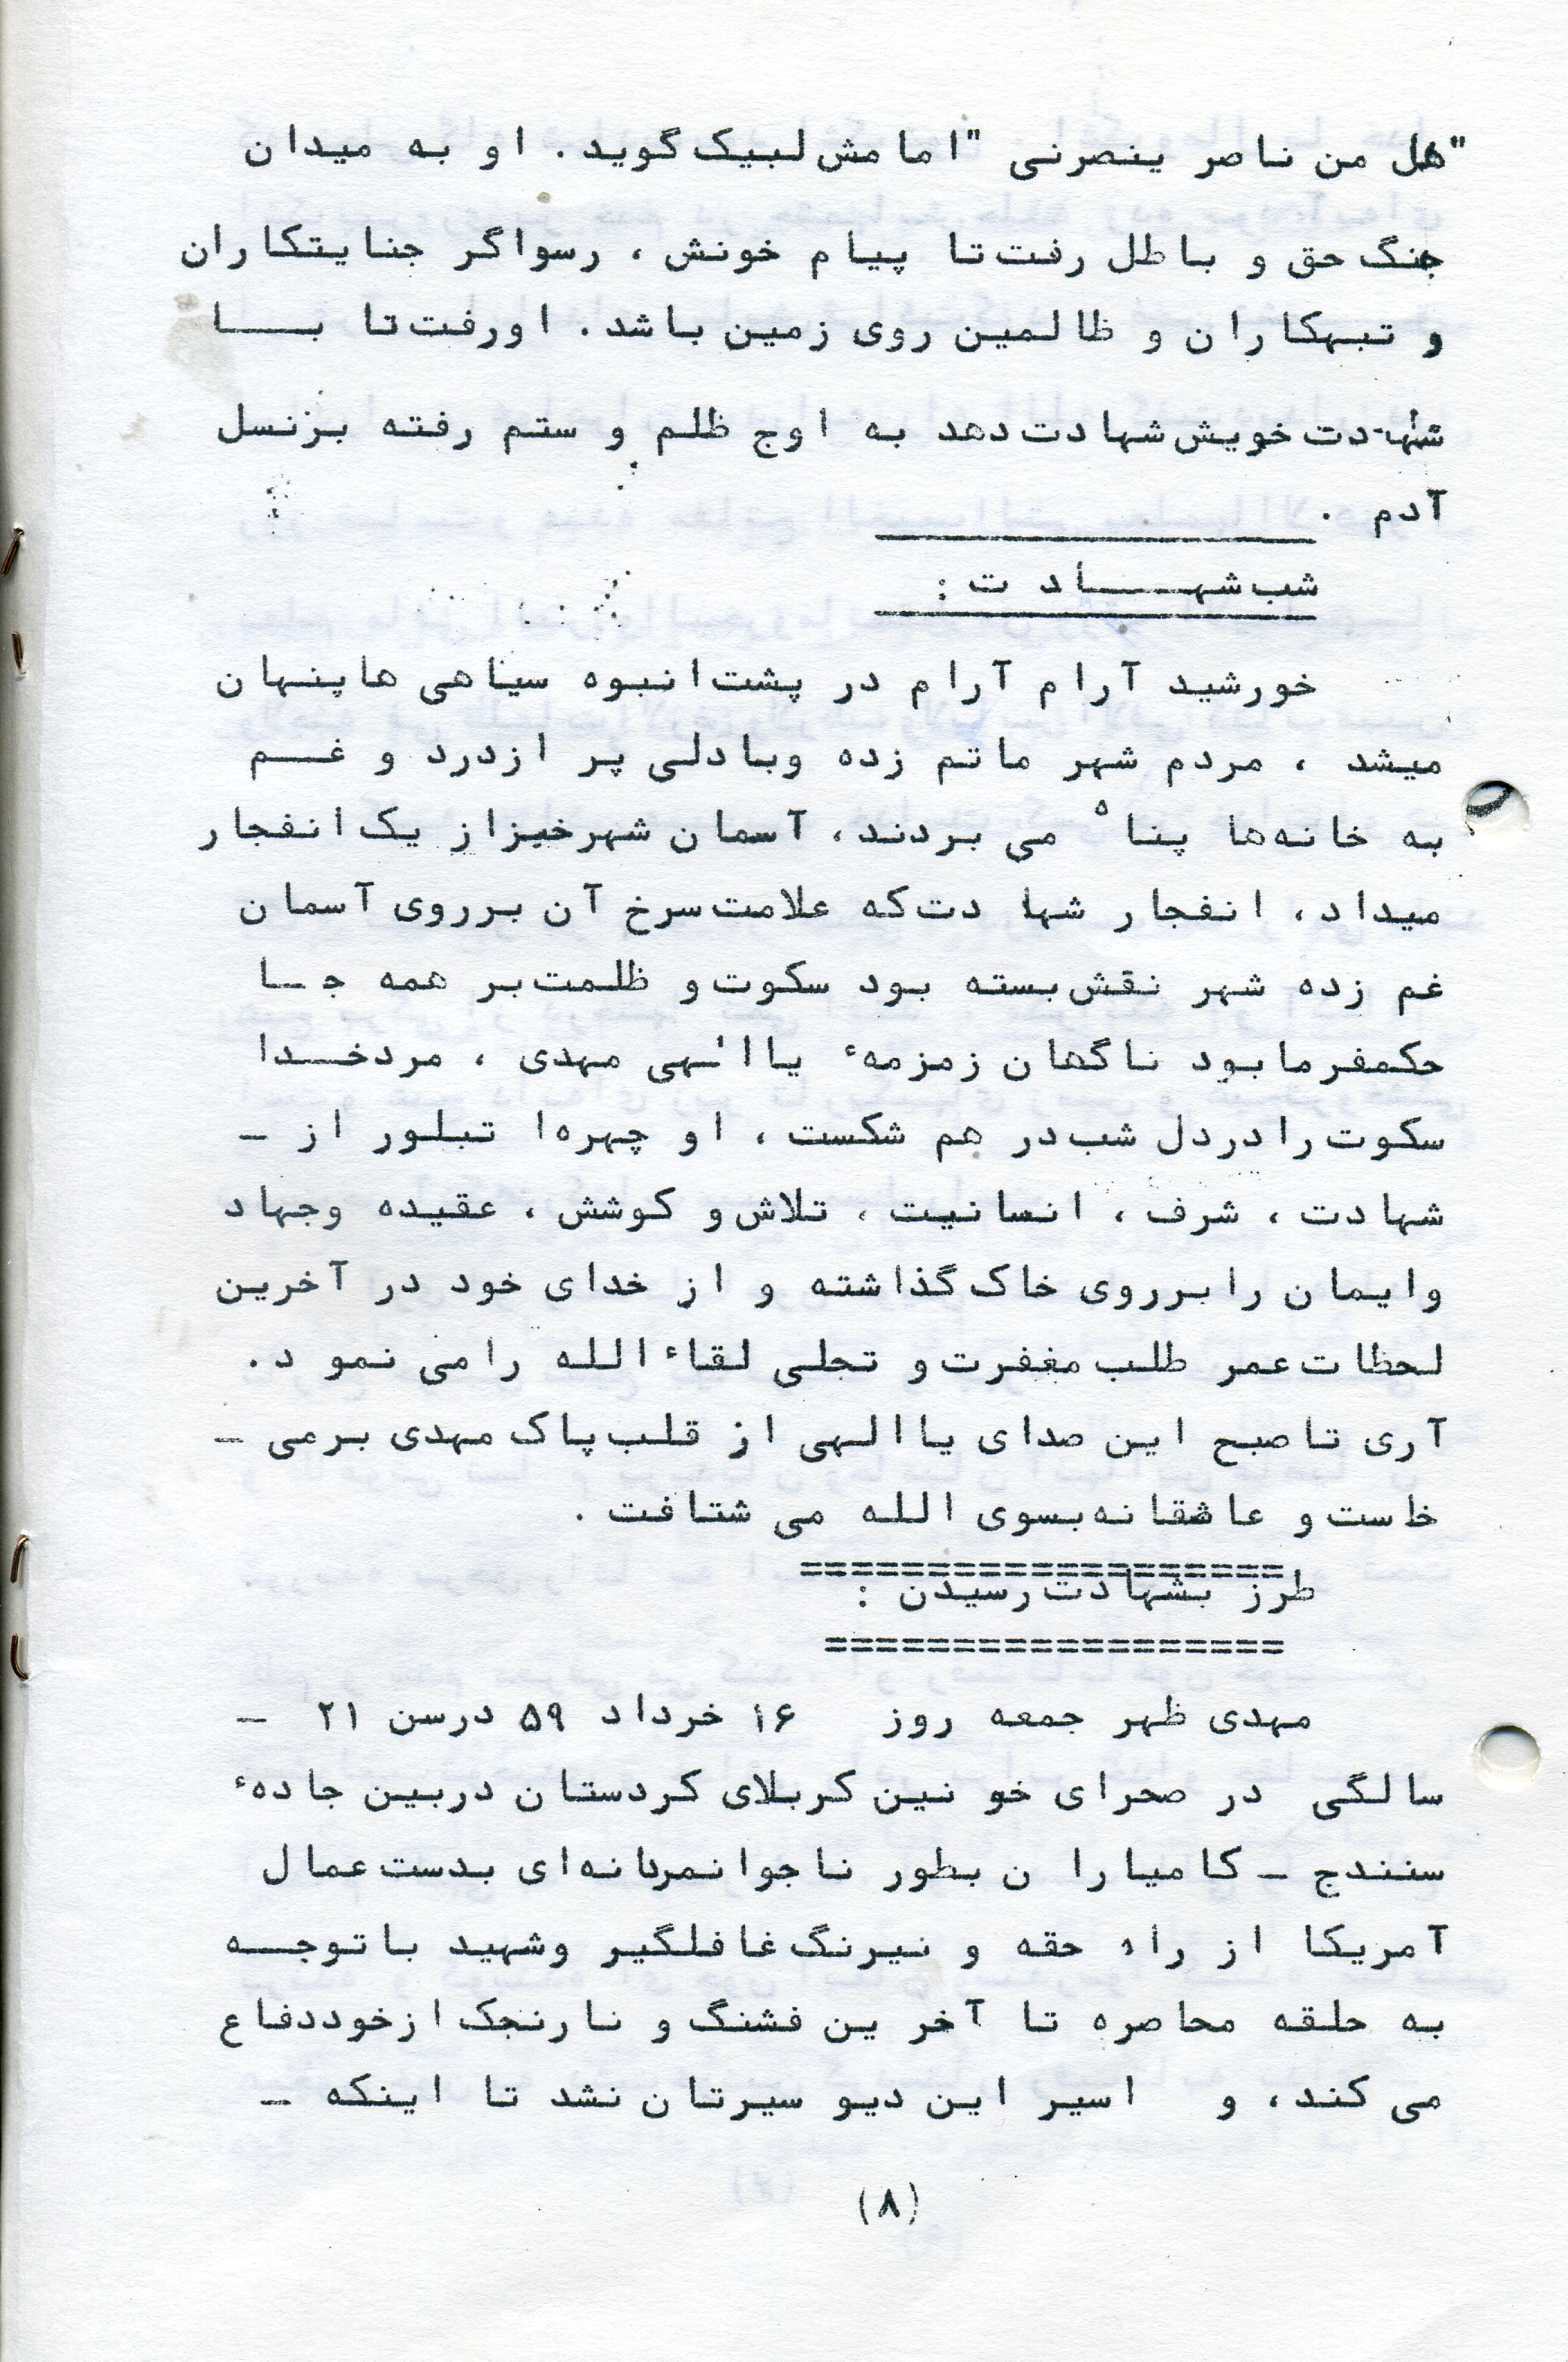 "هل من ناصر ینصرنی "امامش لبیک گوید. او به میدان
جنگ حق و باطل رفت تا پیام خونش ، رسواگر جنایتکاران
و تبهکاران و ظالمین روی زمین باشد. اورفت تا بــا
شهادت خویش شهادت دهد به اوج ظلم و ستم رفته برنسل
آدم .
شب شهــادت :
خورشید آرام آرام در پشت انبوه سیاهی هاپنهان
میشد ، مردم شهر ماتم زده وبادلی پر ازدرد و غــم
به خانه‌ها پناه می بردند، آسمان شهرخیزاز یک انفجار
میداد، انفجار شهادت که علامت سرخ آن برروی آسمان
غم زده شهر نقش بسته بود سکوت و ظلمت بر همه جـا
حکمفرمابود ناگهان زمزمهٔ یاالهی مهدی ، مردخــدا
سکوت رادردل شب در هم شکست ، او چهره‌ا تبلور از -
شهادت ، شرف ، انسانیت ، تلاش و کوشش ، عقیده وجهاد
وایمان رابرروی خاک گذاشته و از خدای خود در آخرین
لحظات عمر طلب مغفرت و تجلی لقاء الله رامی نمود.
آری تاصبح این صدای یاالهی از قلب پاک مهدی برمی -
خاست و عاشقانه بسوی الله می شتافت .
طرز بشهادت رسیدن :
مهدی ظهر جمعه روز ۱۶ خرداد ۵۹ درسن ۲۱ -
سالگی در صحرای خونین کربلای کردستان دربین جادهٔ
سنندج - کامیاران بطور ناجوانمردانه‌ای بدست عمال
آمریکا از راه حقه و نیرنگ غافلگیر وشهید باتوجــه
به حلقه محاصره تا آخرین فشنگ و نارنجک ازخوددفاع
می کند، و اسیر این دیو سیرتان نشد تا اینکه -
(۸)